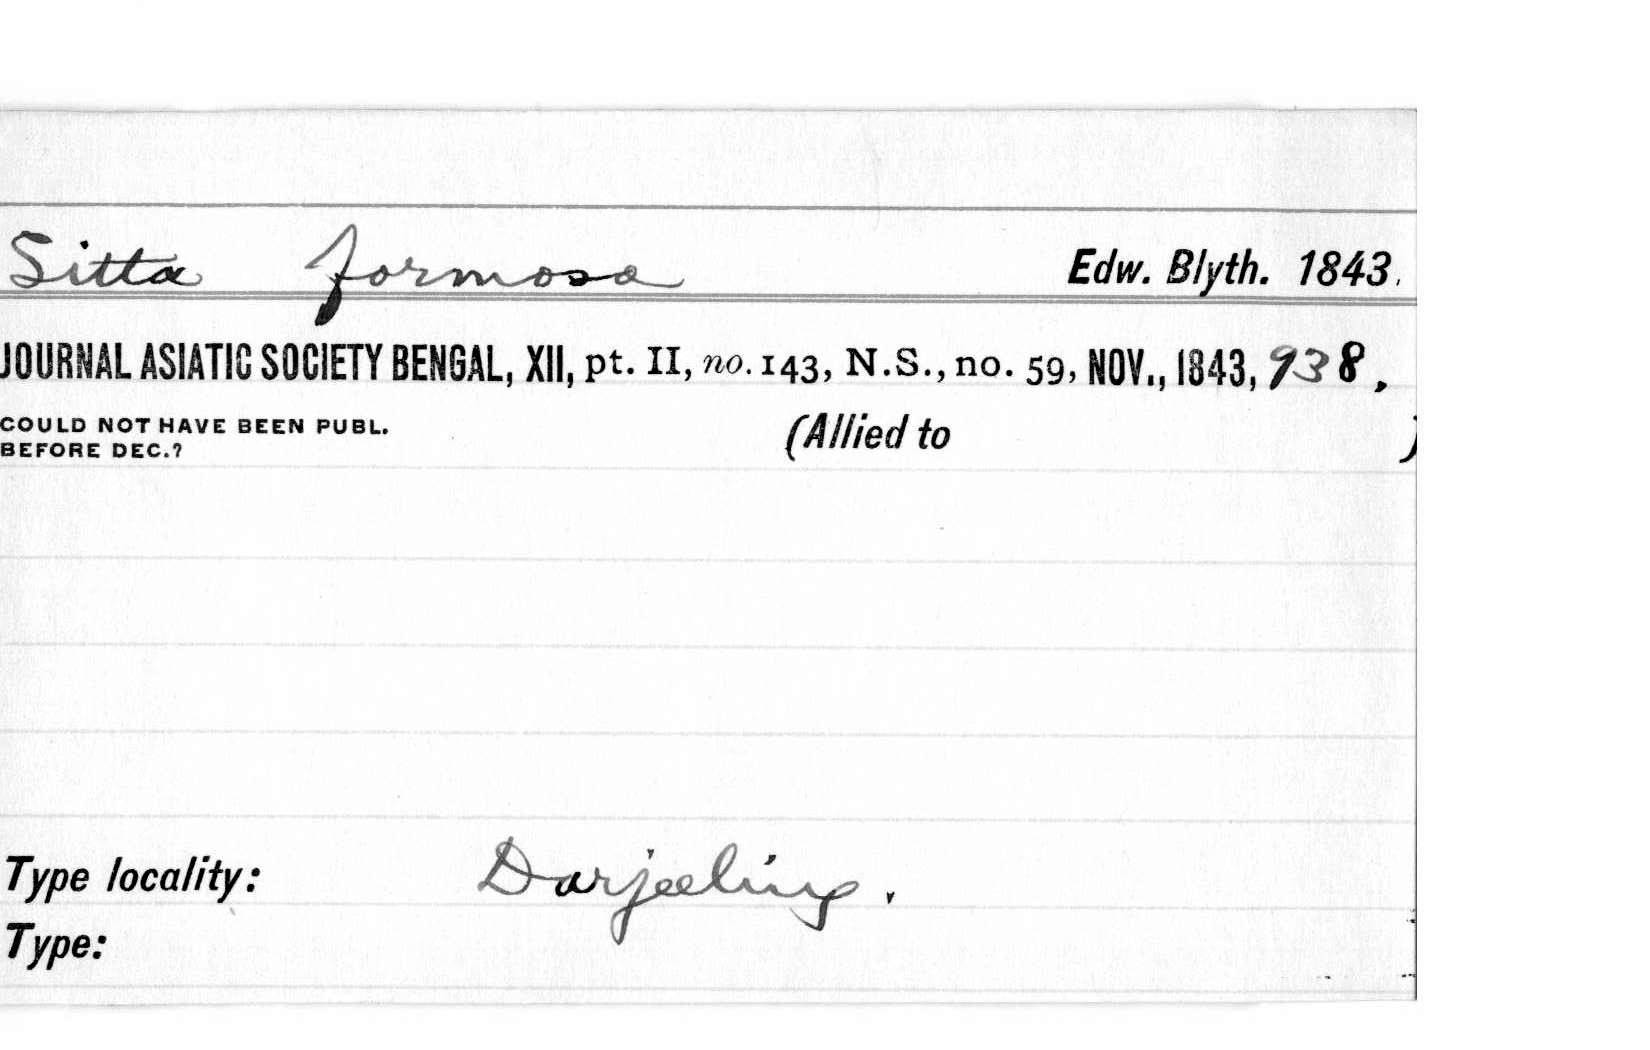 Sitta formosa Edw. Blyth. 1843.
JOURNAL ASIATIC SOCIETY BENGAL, XII, pt. II, no. 143, N.S., no. 59, NOV., 1843, 938.
COULD NOT HAVE BEEN PUBL. (Allied to )
BEFORE DEC.?
Type locality: Darjeeling.
Type: